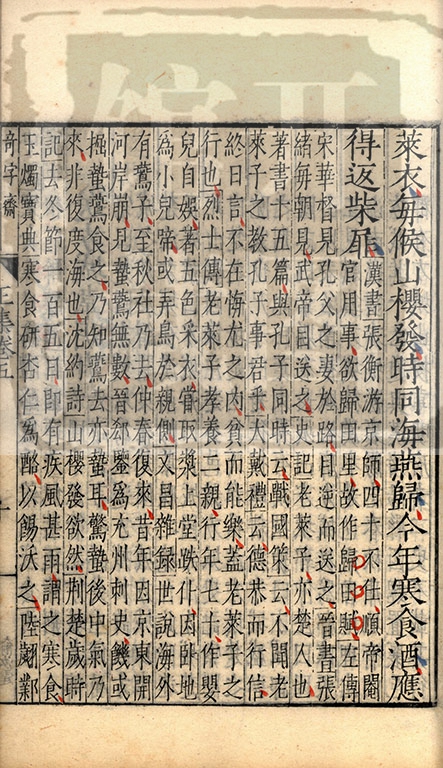 萊衣每候山櫻發時同海燕歸今年寒食酒應
得返柴扉
漢書張衡游京師四十不仕順帝閹
官用事欲歸田里故作歸田賦左傳
宋華督見孔父之妻於路目逆而送之晉書張
緒每朝見武帝目送之史記老萊子亦楚人也
著書十五篇與孔子同時云戰國策云不聞老
萊子之教孔子事君乎大戴禮云德恭而行信
終日言不在悔尤之内貧而能樂蓋老萊子之
行也烈士傳老萊子孝養二親行年七十作嬰
兒自娛著五色采衣嘗取漿上堂跌仆因臥地
為小兒啼或弄鳥於親側文昌雜録世說海外
有鷰子至秋社乃去仲春復來昔年因京東開
河岸崩見蟄鷰無數晉郄鑒為兖州刺史饑或
掘蟄鷰食之乃知鷰去亦蟄耳驚蟄後中氣乃
來非復度海也沈約詩山櫻發欲然荆楚歲時
記去冬節一百五日即有疾風甚雨謂之寒食
玉燭寶典寒食研杏仁為酪以餳沃之陸翽鄴
奇字齋
王集卷五